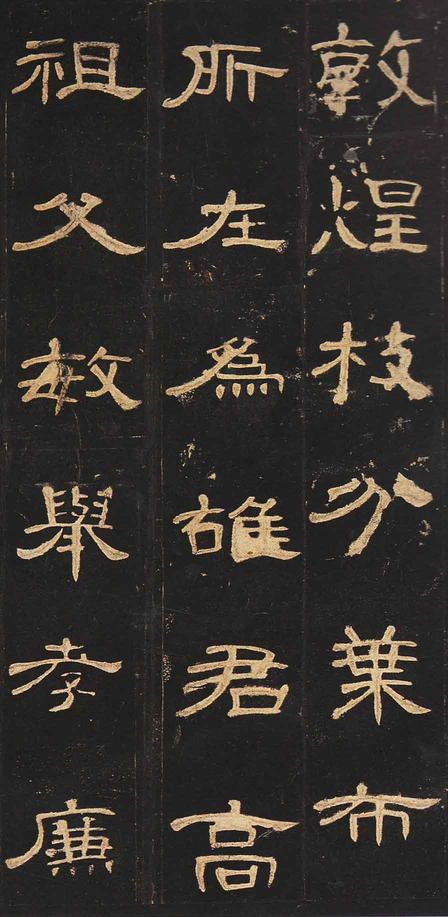 敦煌枝分葉布
所在為雄君高
祖父敏舉孝廉